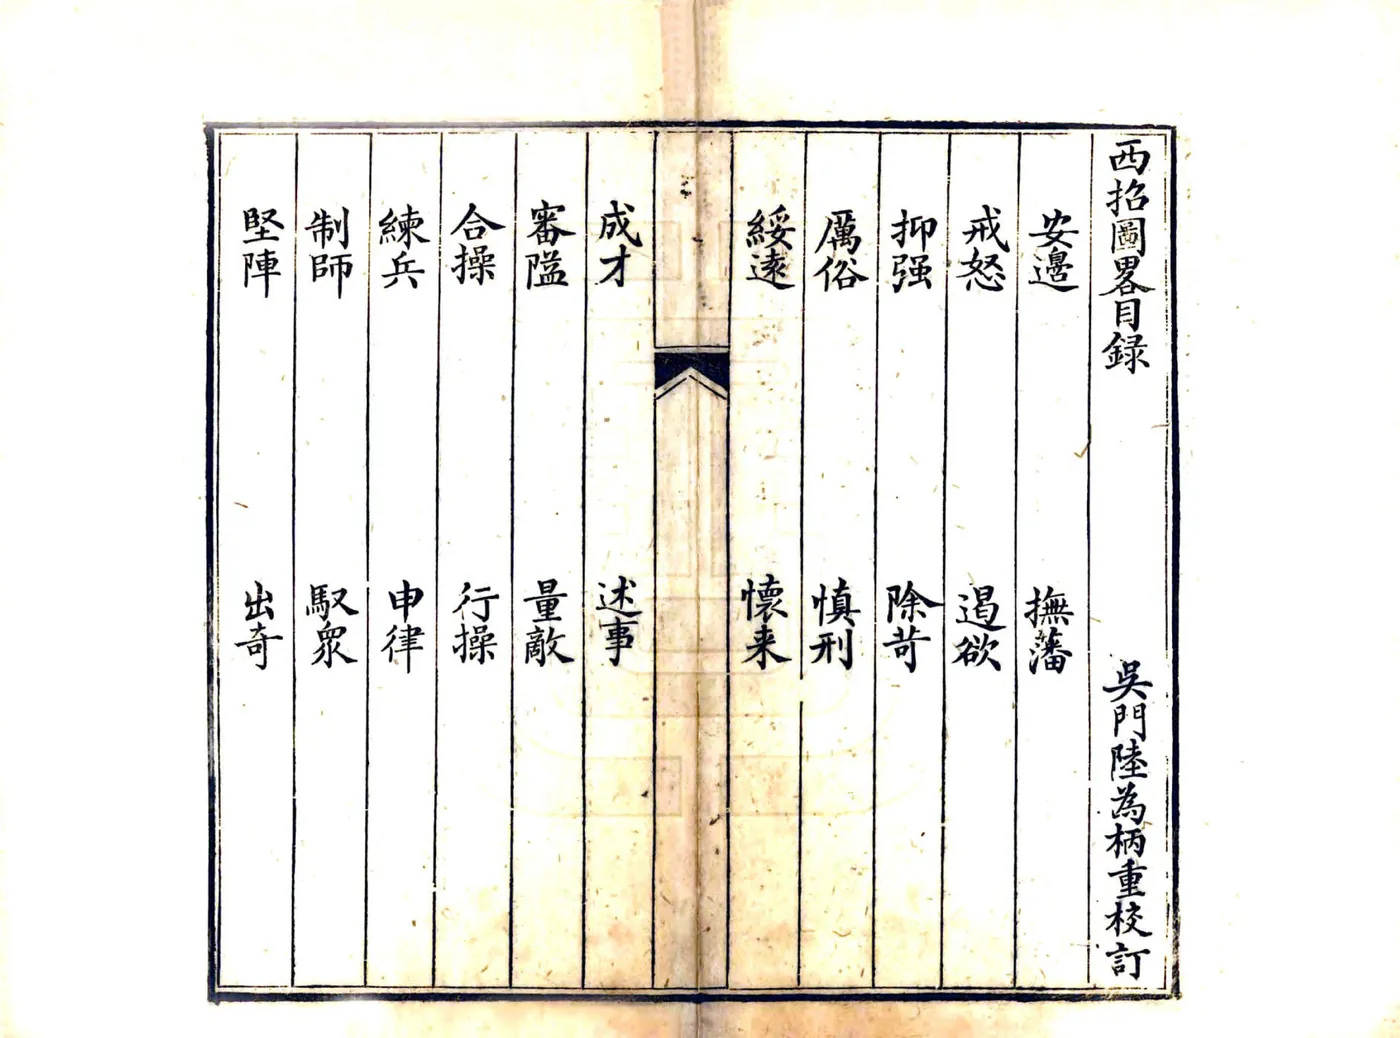 西招圖畧目録 吳門陸為柄重校訂
安邊 撫藩
戒怒 遏欲
抑强 除苛
厲俗 慎刑
綏遠 懷来
成才 述事
審隘 量敵
合操 行操
練兵 申律
制師 馭衆
堅陣 出奇